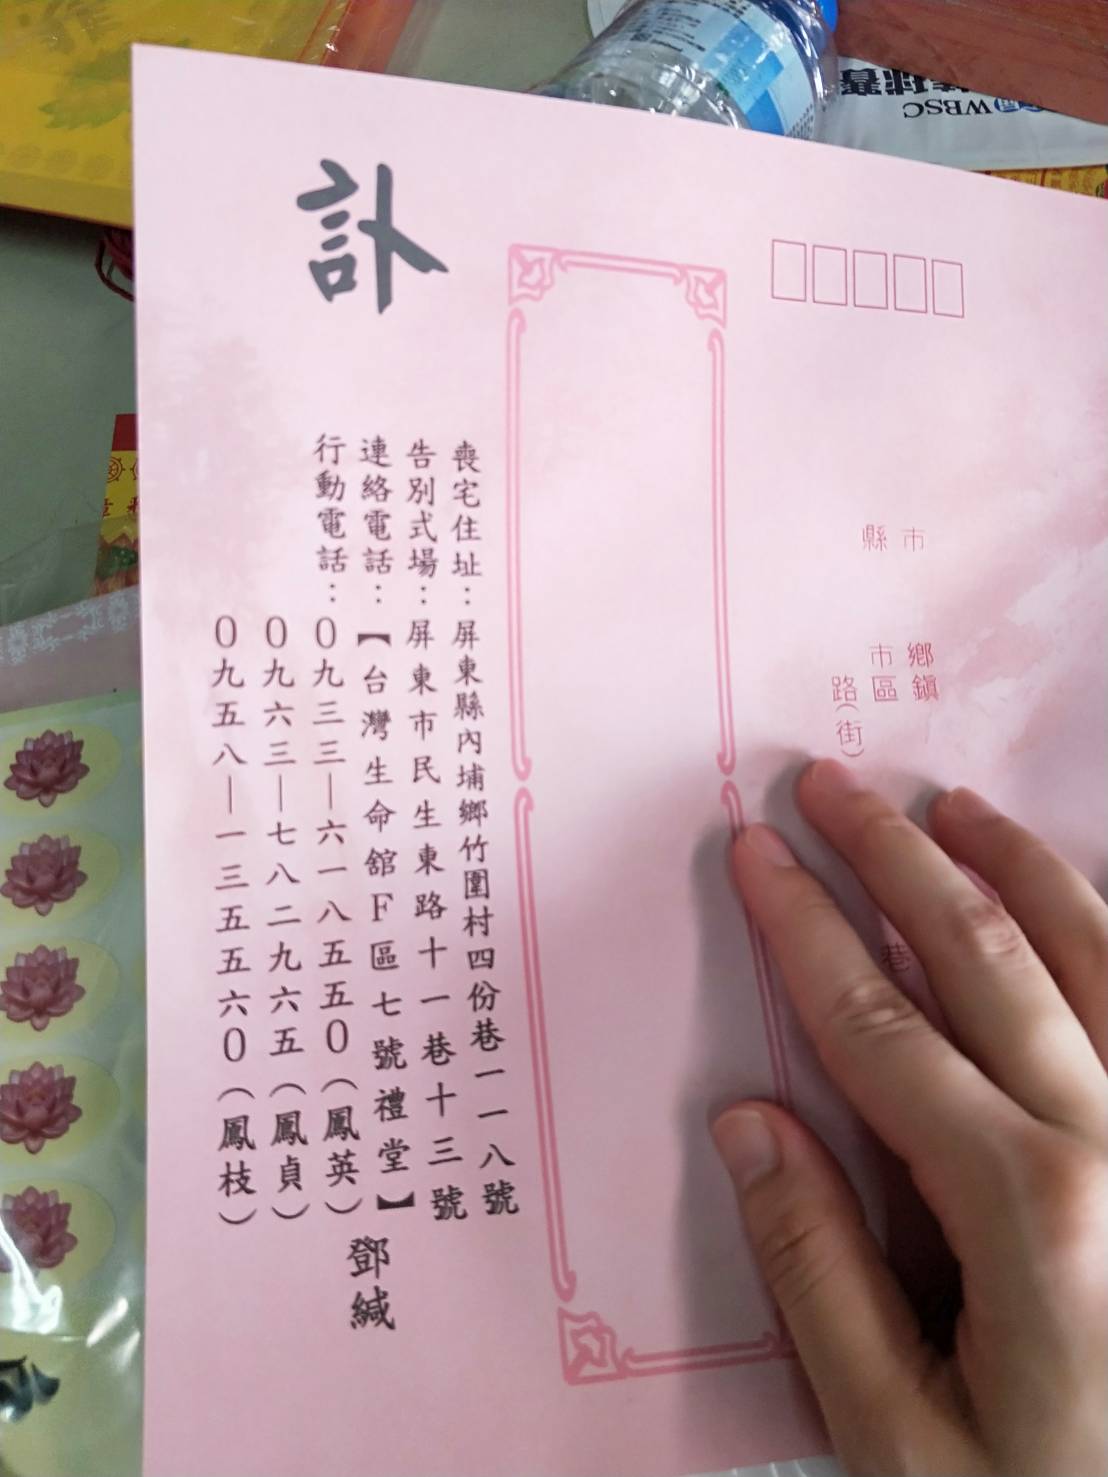 訃
市
縣
鄉鎮
市區
路(街)
巷
喪宅住址：屏東縣內埔鄉竹圍村四份巷一一八號
告別式場：屏東市民生東路十一巷十三號
連絡電話：【台灣生命舘F區七號禮堂】
行動電話：0九三三—六一八五五0（鳳英）
0九六三—七八二九六五（鳳貞）
0九五八—一三五五六0（鳳枝）
鄧緘
WBSC
棒球賽